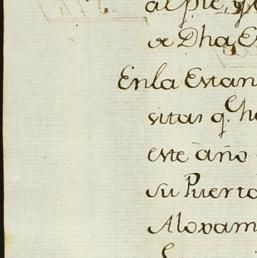 al pie, q
de Dha, E
En la Estan
sitas q.e ha
este año
su Puerto
Aloxam